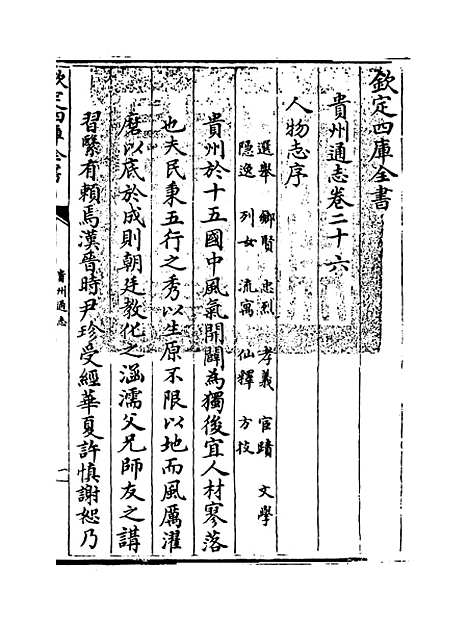 欽定四庫全書
貴州通志卷二十六
人物志序
選舉 鄉賢 忠烈 孝義 宦蹟 文學
隱逸 列女 流寓 仙釋 方技
貴州於十五國中風氣開闢為獨後宜人材寥落
也夫民秉五行之秀以生原不限以地而風厲濯
磨以底於成則朝廷教化之涵濡父兄師友之講
習繄有賴焉漢晉時尹珍受經華夏許慎謝恕乃
欽定四庫全書
貴州通志
一